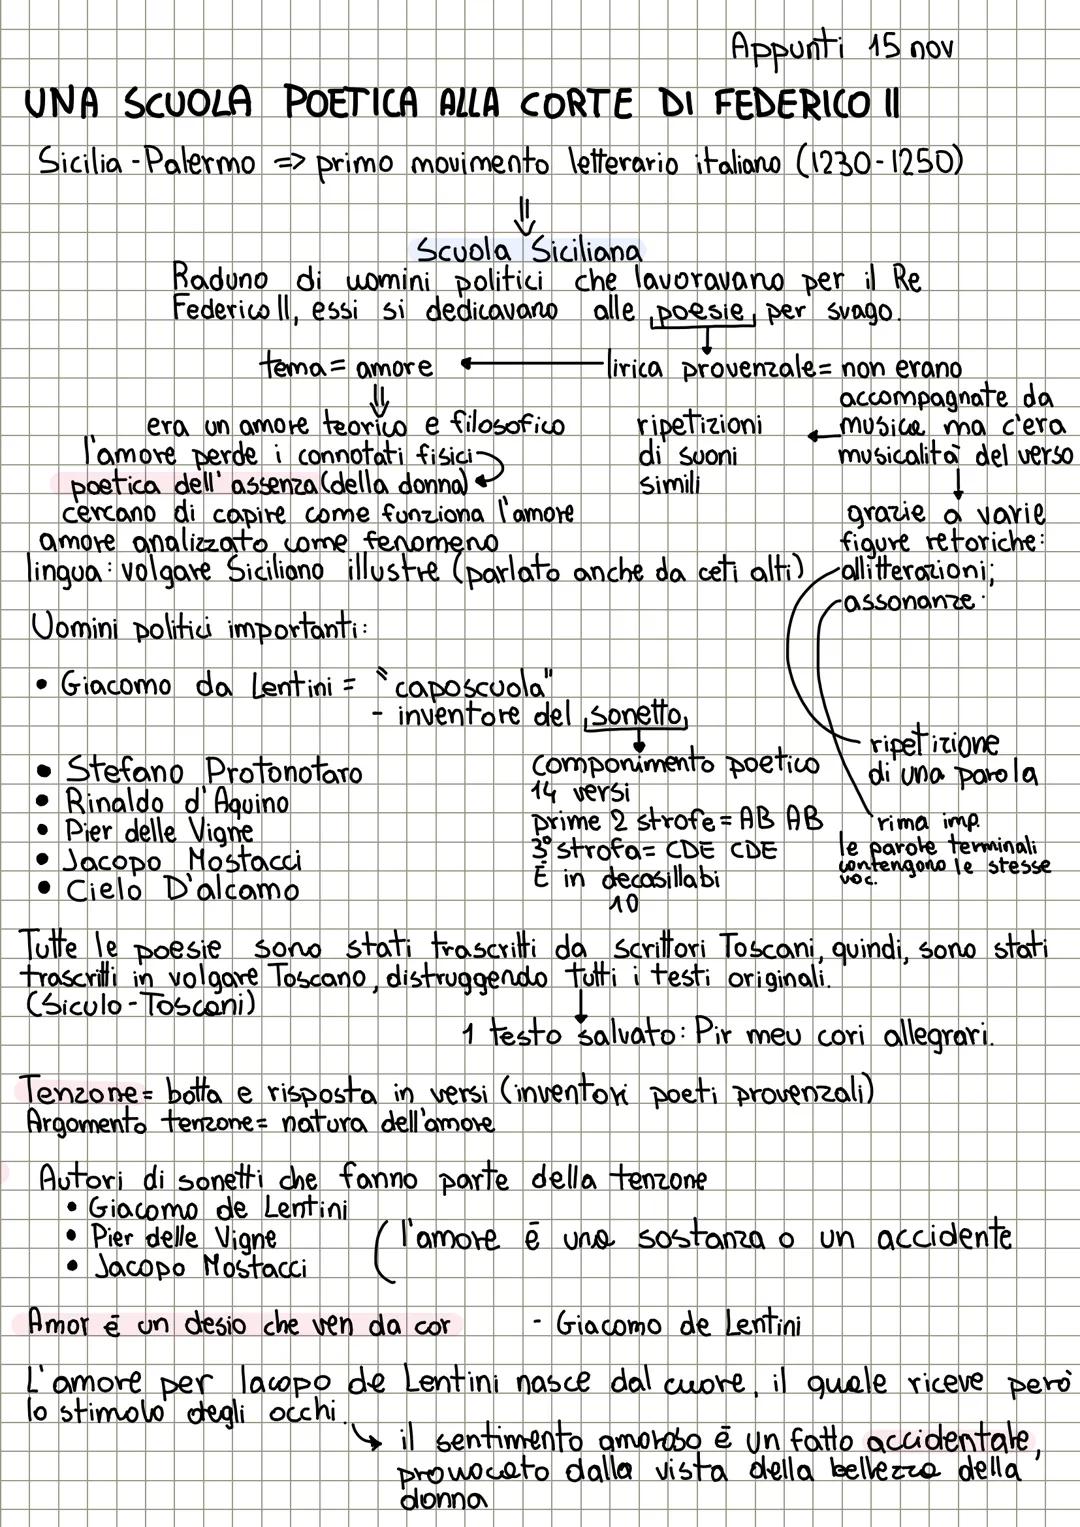 Appunti 15 nov
UNA SCUOLA POETICA ALLA CORTE DI FEDERICO II
Sicilia - Palermo => primo movimento letterario italiano (1230-1250)
Scuola Siciliana
Raduno di uomini politici che lavoravano per il Re
Federico II, essi si dedicavano alle poesie per svago.
tema = amore
lirica provenzale = non erano
accompagnate da
musica ma c'era
musicalità del verso
era un amore teorico e filosofico
l'amore perde i connotati fisici
poetica dell'assenza (della donna)
cercano di capire come funziona l'amore
amore analizzato come fenomeno
lingua: volgare Siciliano illustre (parlato anche da ceti alti)
ripetizioni
di suoni
simili
grazie a varie
figure retoriche:
allitterazioni;
assonanze.
Uomini politici importanti:
• Giacomo da Lentini = "caposcuola"
- inventore del sonetto
• Stefano Protonotaro
• Rinaldo d'Aquino
• Pier delle Vigne
• Jacopo Mostacci
• Cielo D'alcamo
componimento poetico
14 versi
prime 2 strofe = AB AB
3° strofa = CDE CDE
È in decasillabi
10
ripetizione
di una parola
rima imp.
le parole terminali
contengono le stesse
voc.
Tutte le poesie sono stati trascritti da scrittori Toscani, quindi, sono stati
trascritti in volgare Toscano, distruggendo tutti i testi originali.
(Siculo-Toscani)
1 testo salvato: Pir meu cori allegrari.
Tenzone = botta e risposta in versi (inventori poeti provenzali)
Argomento tenzone = natura dell'amore
Autori di sonetti che fanno parte della tenzone
• Giacomo de Lentini
• Pier delle Vigne
• Jacopo Mostacci
( l'amore è una sostanza o un accidente
Amor è un desio che ven da cor - Giacomo de Lentini
L'amore per Iacopo de Lentini nasce dal cuore, il quale riceve però
lo stimolo degli occhi.
il sentimento amoroso è un fatto accidentale,
provocato dalla vista della bellezza della
donna